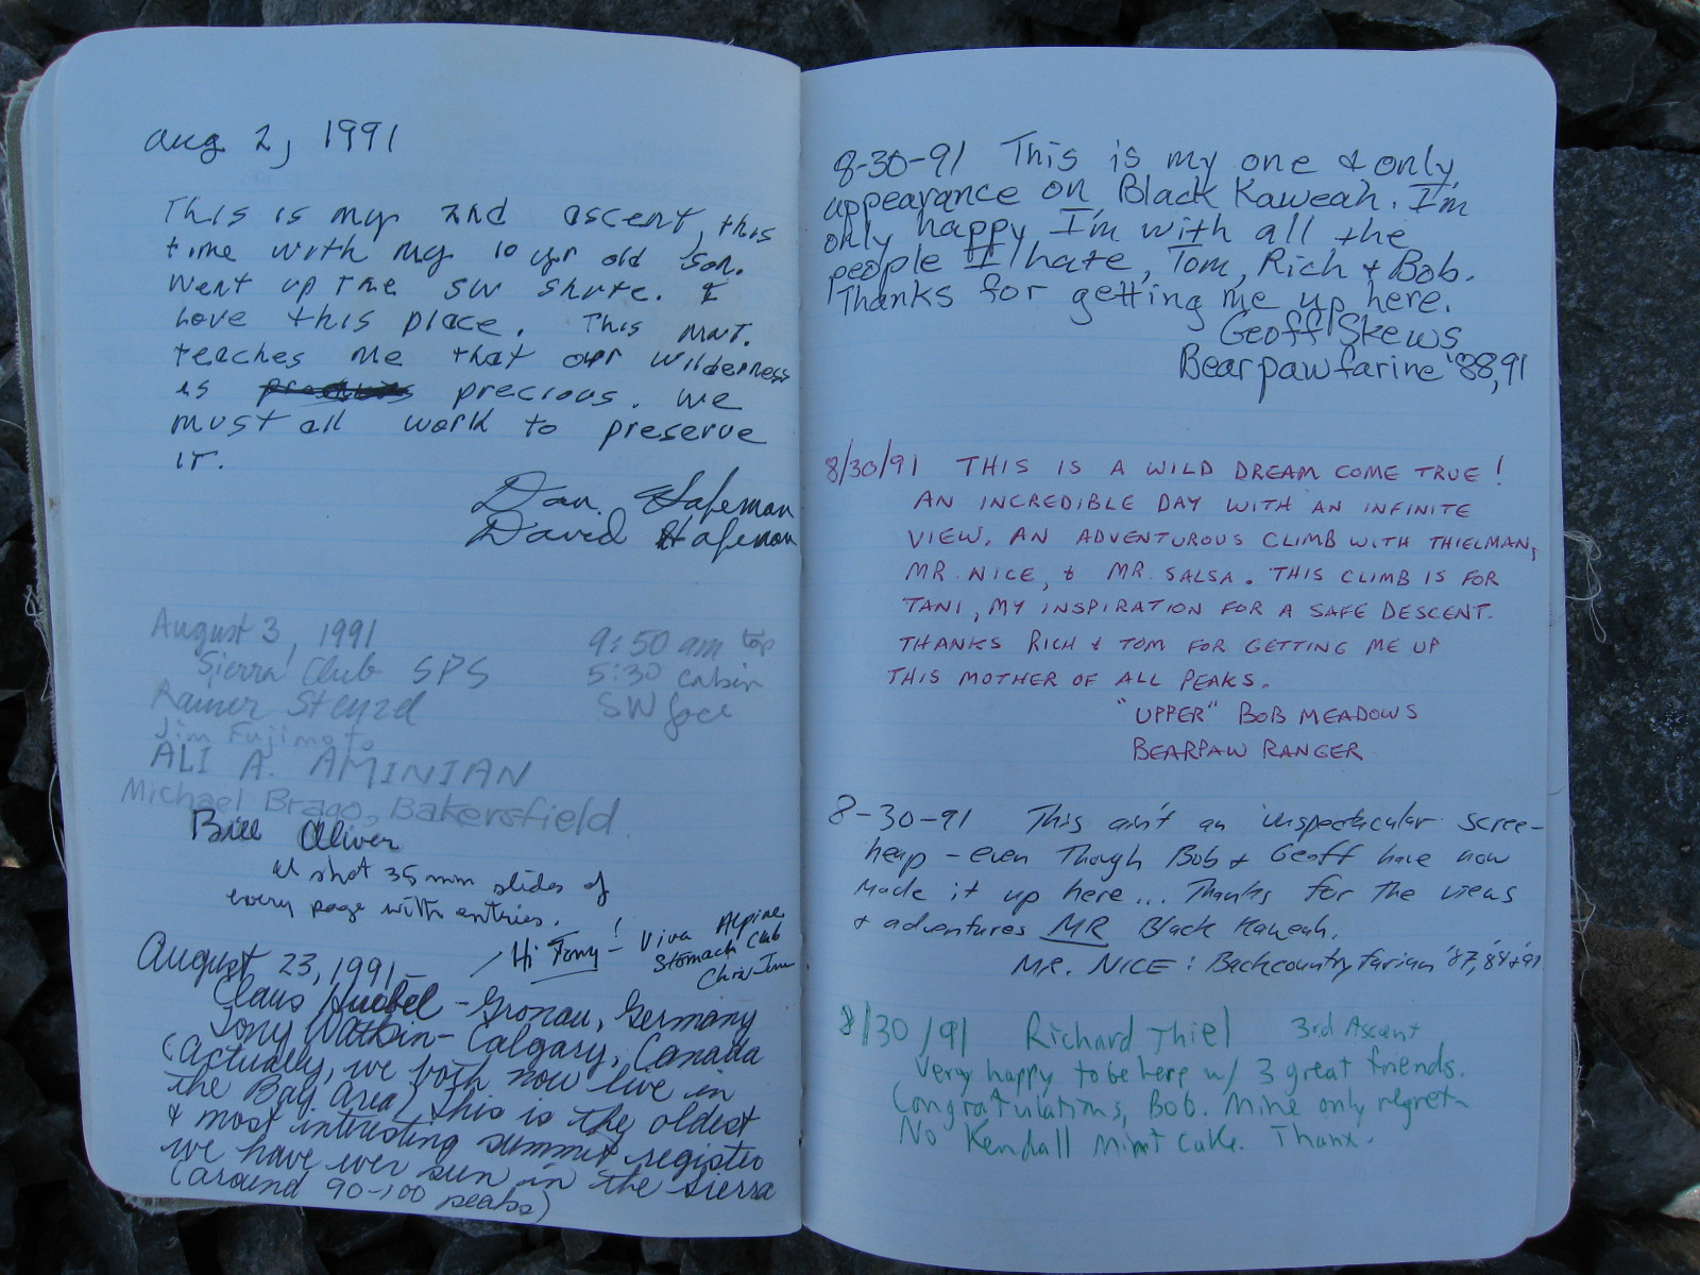 Aug 2, 1991
This is my 2nd ascent, this
time with my 10 yr old son.
Went up the SW shute. I
love this place. This mnt.
teaches me that our wilderness
is precious. We
must all work to preserve
it.
Dan Hafeman
David Hafeman
August 3, 1991 9:50 am top
Sierra Club SPS 5:30 cabin
Rainer Stenzel SW face
Jim Fujimoto
ALI A. AMINIAN
Michael Brago, Bakersfield.
Bill Oliver
shot 35mm slides of
every page with entries.
Hi Tony! Viva Alpine
Stomach Club
August 23, 1991
Claus Huebel - Gronau, Germany
Tony Watkin - Calgary, Canada
(Actually, we both now live in
the Bay Area) This is the oldest
& most interesting summit register
we have ever seen in the Sierra
(around 90-100 peaks)
8-30-91 This is my one & only
appearance on Black Kaweah. I'm
only happy I'm with all the
people I hate, Tom, Rich & Bob.
Thanks for getting me up here.
Geoff Skews
Bearpawfarine '88,91
8/30/91 THIS IS A WILD DREAM COME TRUE!
AN INCREDIBLE DAY WITH AN INFINITE
VIEW. AN ADVENTUROUS CLIMB WITH THIELMAN,
MR. NICE, & MR. SALSA. THIS CLIMB IS FOR
TANI, MY INSPIRATION FOR A SAFE DESCENT.
THANKS RICH & TOM FOR GETTING ME UP
THIS MOTHER OF ALL PEAKS.
"UPPER" BOB MEADOWS
BEARPAW RANGER
8-30-91 This ain't an unspectacular scree-
heap - even though Bob & Geoff have now
made it up here... Thanks for the views
& adventures MR Black Kaweah.
MR. NICE: Backcountryfarian '87, '89 & 91
8/30/91 Richard Thiel 3rd Ascent
Very happy to be here w/ 3 great friends.
Congratulations, Bob. Mine only regret-
No Kendall Mint Cake. Thanx.